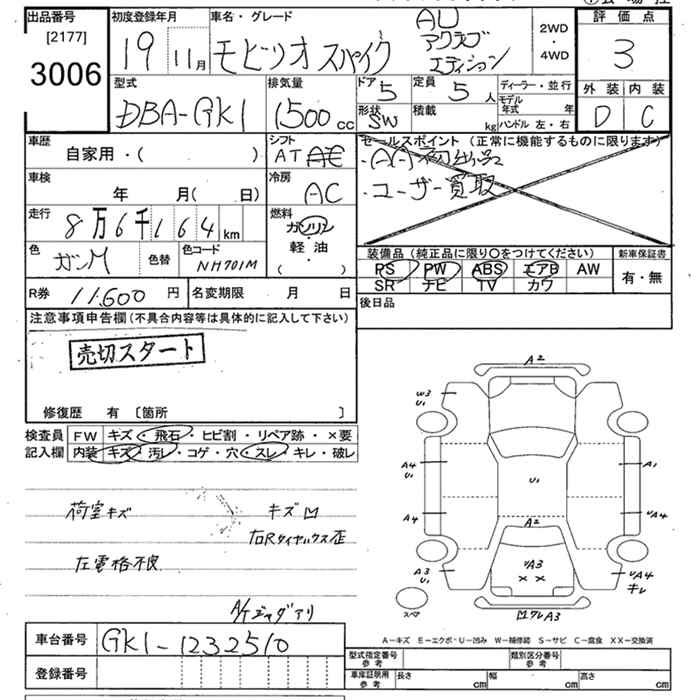 出品番号
[2177]
3006
初度登録年月
19 11月
車名・グレード
モビリオ スパイク
AU
アクラブ
エディション
2WD
・
4WD
評価点
3
外装 内装
D C
型式
DBA-GK1
排気量
1500 cc
ドア
5
定員
5 人
形状
SW
積載
kg
ディーラー・並行
モデル年式 年
ハンドル 左・右
車歴
自家用・( )
シフト
AT AE
セールスポイント (正常に機能するものに限ります)
・AA初出品
・ユーザー買取
車検
年 月( 日)
冷房
AC
走行
8万6千164km
燃料
ガソリン
軽・油
( )
色
ガンM
色替
色コード
NH701M
装備品 (純正品に限り〇をつけてください)
PS PW ABS エアB AW
SR ナビ TV カワ
新車保証書
有・無
R券 11,600円
名変期限 月 日
後日品
注意事項申告欄 (不具合内容等は具体的に記入して下さい)
売切スタート
修復歴 有 〔箇所 〕
検査員
記入欄
FW キズ・飛石・ヒビ割・リペア跡・×要
内装 キズ・汚レ・コゲ・穴・スレ・キレ・破レ
荷室キズ
キズM
右Rタイヤハウス歪
左電格不良
A/Tジャダアリ
A2
W3
U1
A4
U1
A4
A3
U1
U1
A2
A1
UA4
UA4
キレ
UA3
××
スペア
Mワレ A3
A-キズ E-エクボ・U-凹み W-補修跡 S-サビ C-腐食 XX-交換済
車台番号
GK1-1232510
登録番号
型式指定番号
参考
類別区分番号
参考
車庫証明用
参考
長さ cm
幅 cm
高さ cm